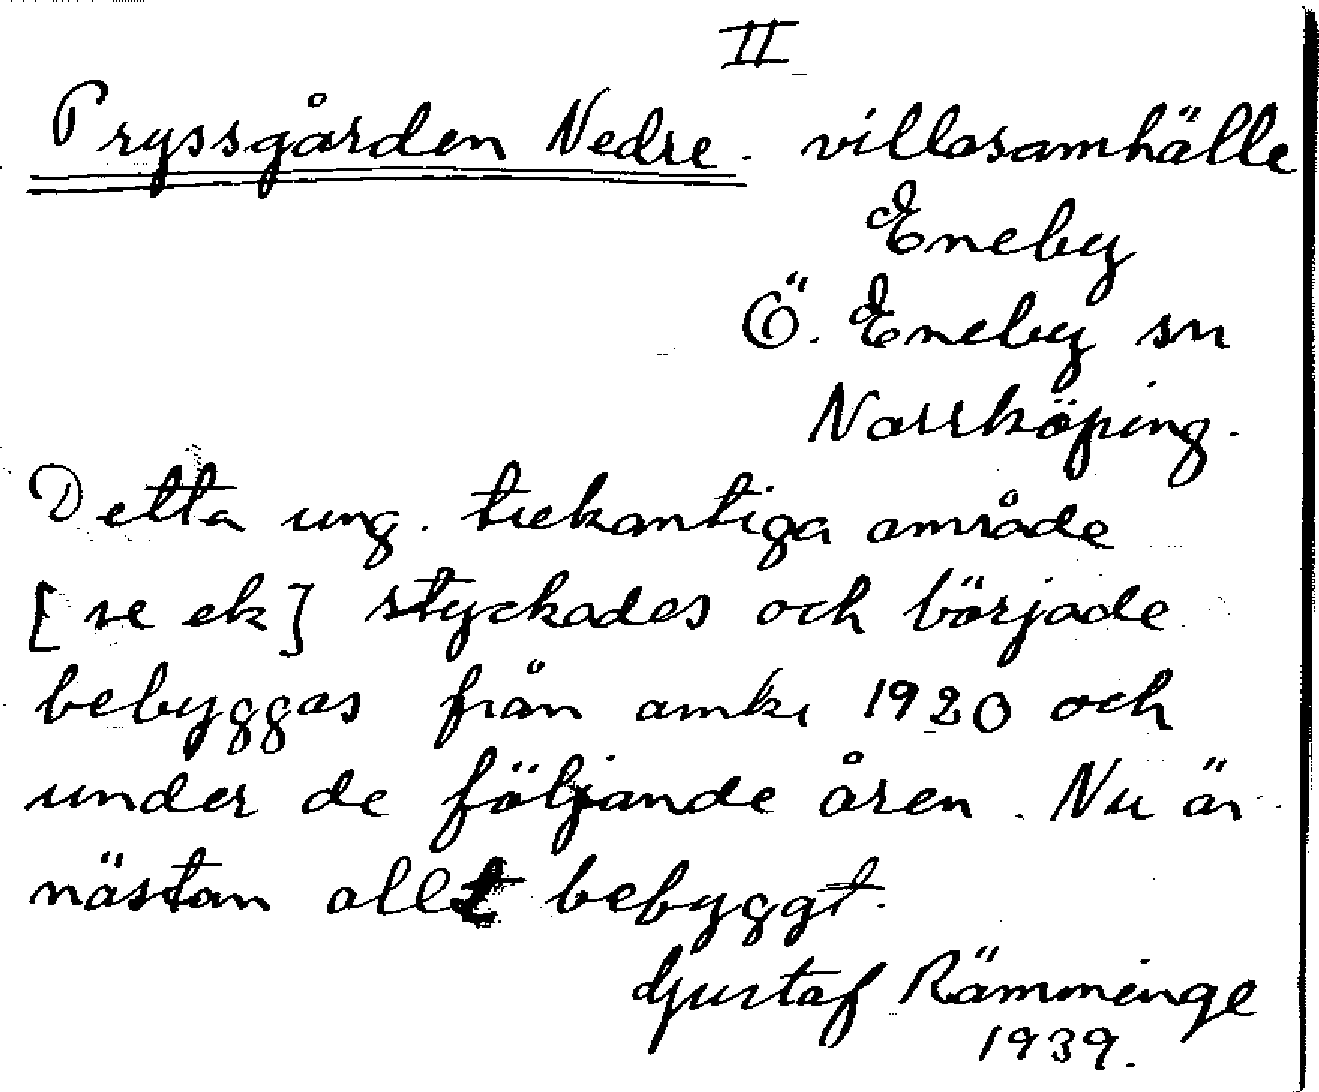 II
Pryssgården Nedre. villasamhälle
Eneby
Ö. Eneby sn
Norrköping.
Detta ung. trekantiga område
[se ek] styckades och började
bebyggas från omkr 1920 och
under de följande åren. Nu är
nästan allt bebyggt.
Gustaf Rämminge
1939.